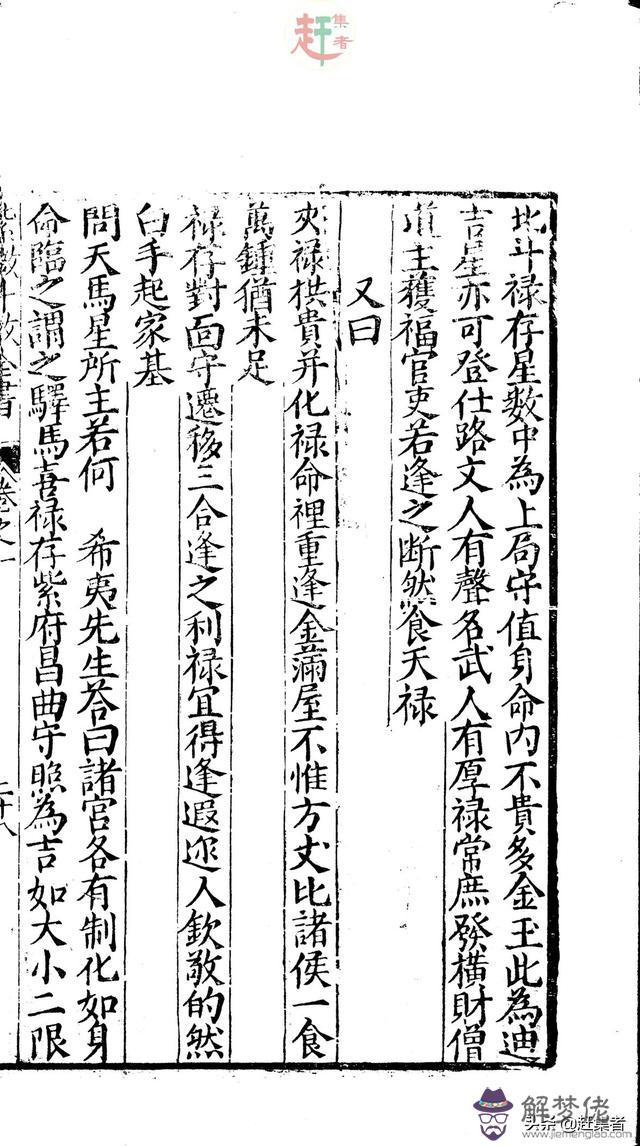 赶集者
北斗禄存星數中為上局守值身命内不貴多金玉此為迪
吉星亦可登仕路文人有聲名武人有厚禄常庶發橫財僧
道主獲福官吏若逢之断然食天禄
又曰
夾禄拱貴并化禄命裡重逢金滿屋不惟方丈比諸侯一食
萬鍾猶未足
禄存對面守遷移三合逢之利禄宜得逢遐迩人欽敬的然
白手起家基
問天馬星所主若何 希夷先生荅曰諸宫各有制化如身
命臨之謂之驛馬喜禄存紫府昌曲守照為吉如大小二限
數斗数全書 卷之一 二十八
解梦佬
头条@赶集者
www.jiemenglao.com